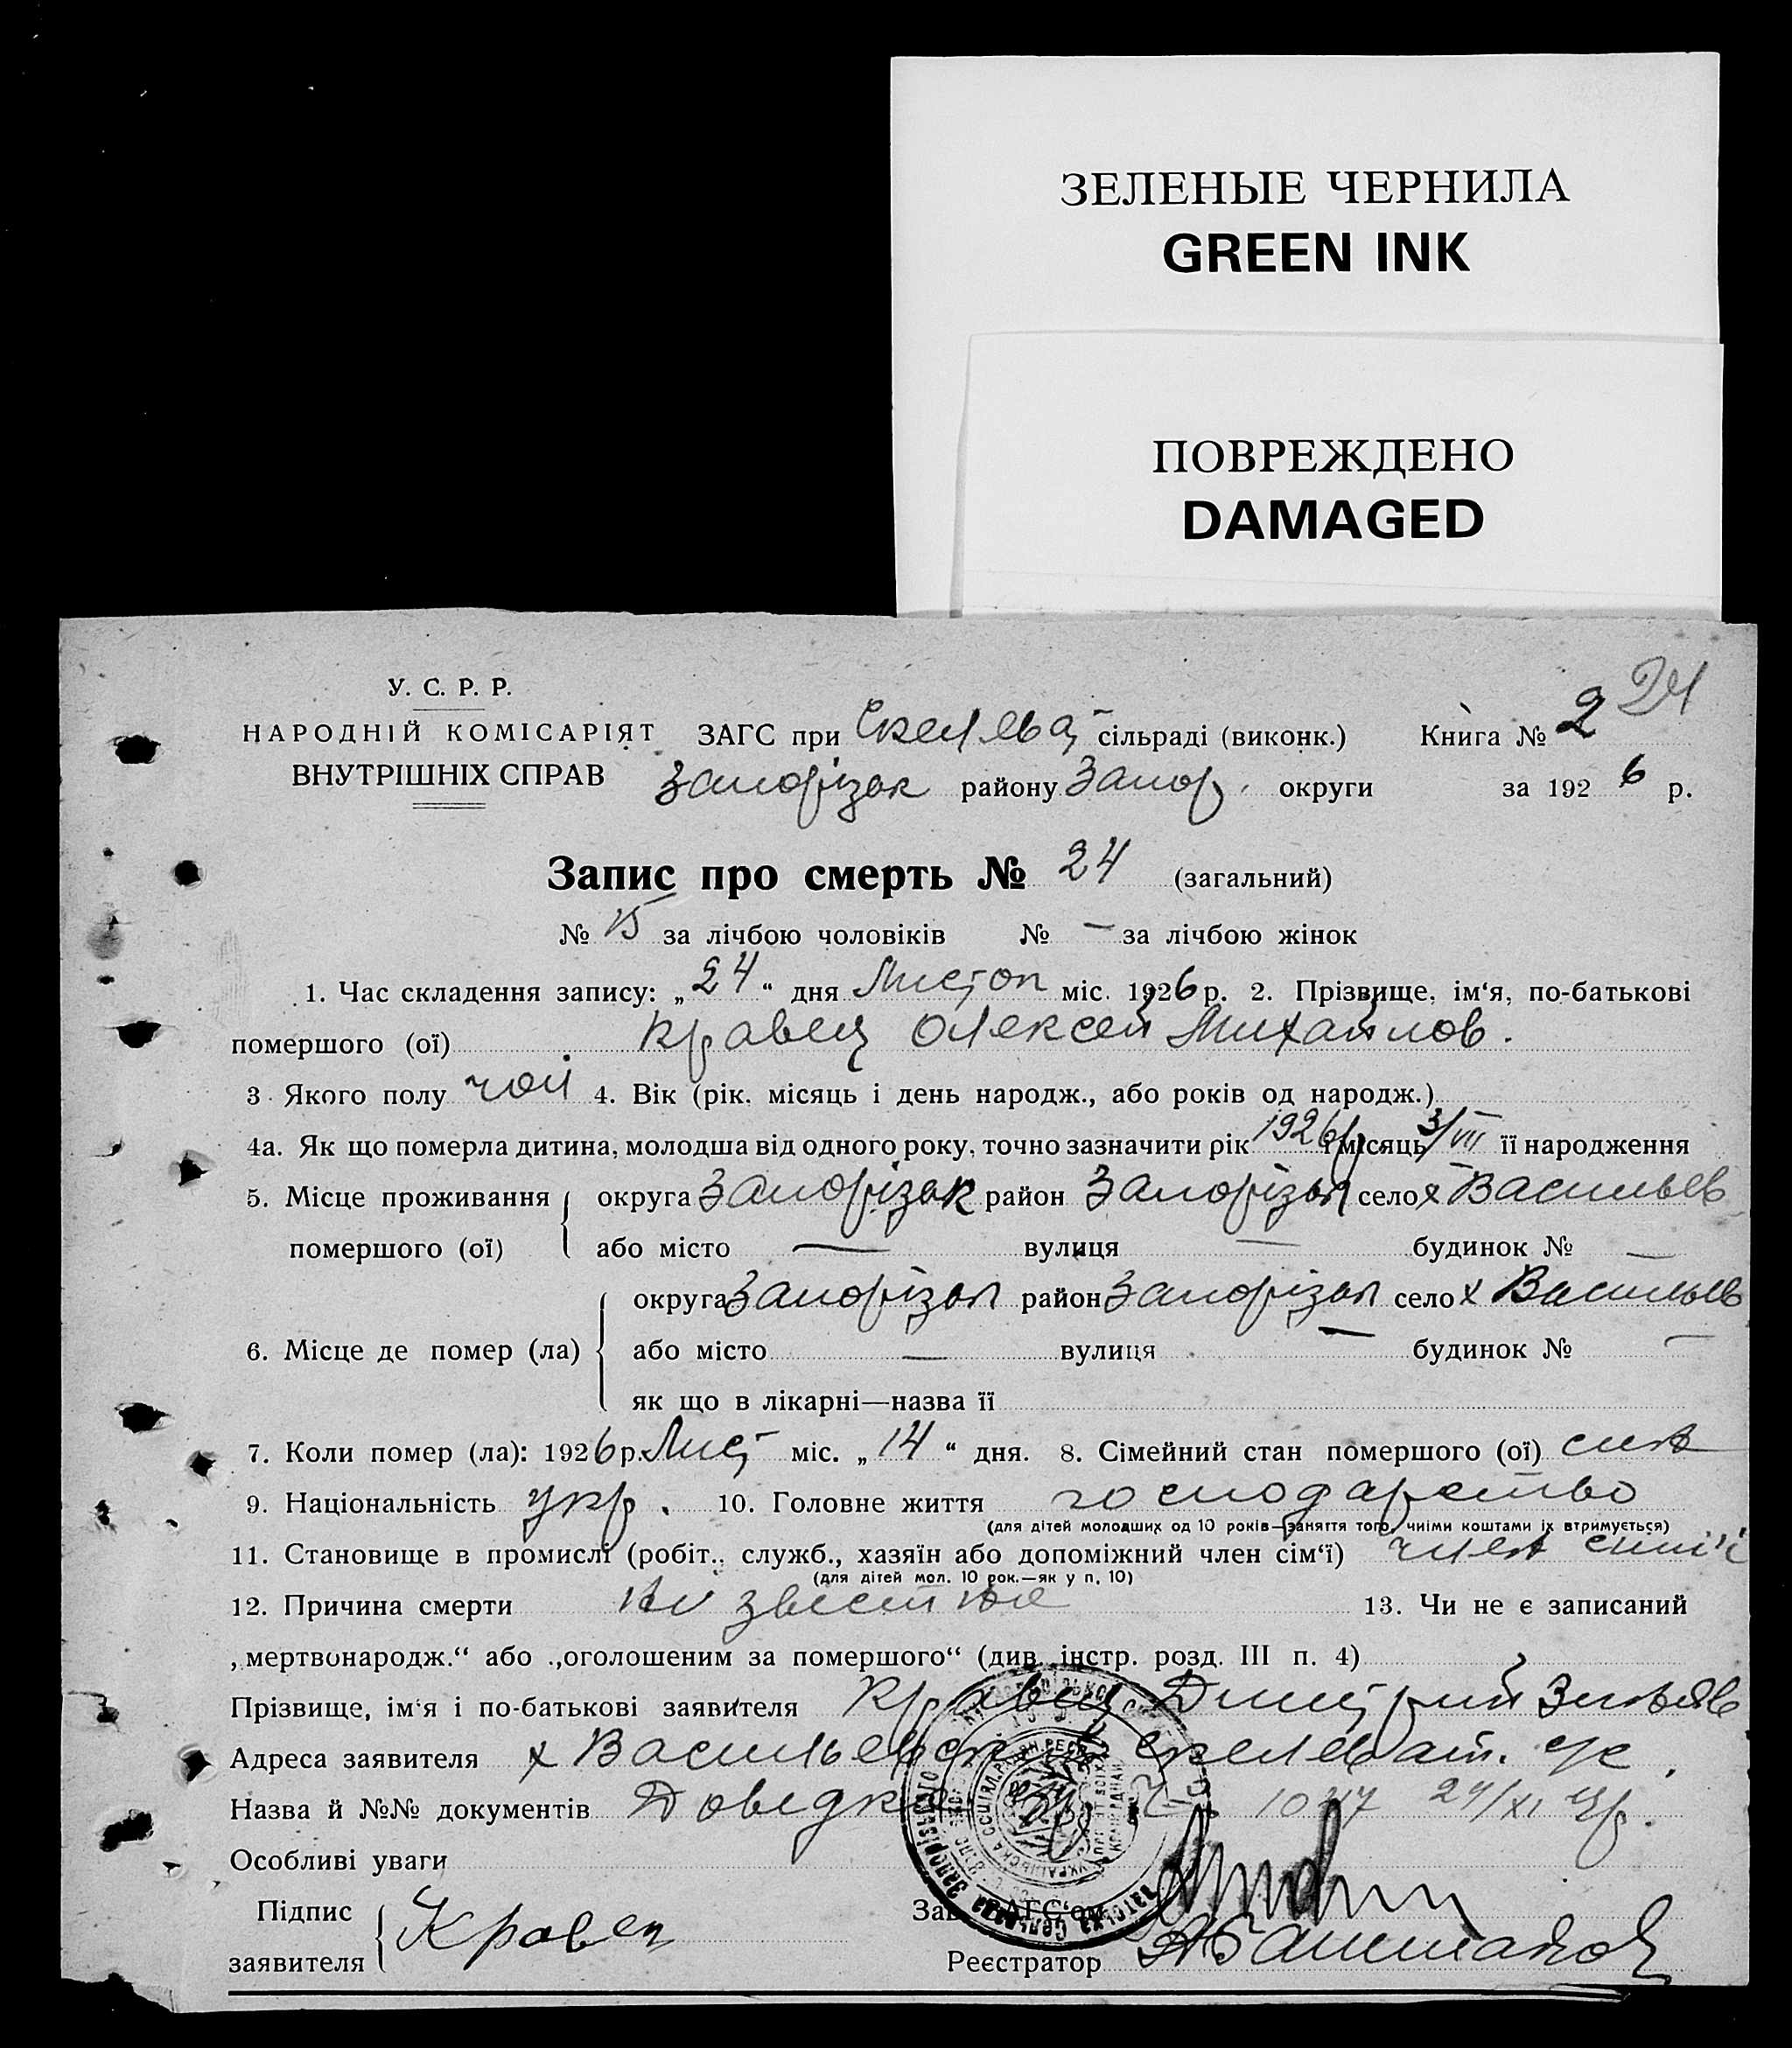 ЗЕЛЕНЫЕ ЧЕРНИЛА
GREEN INK
ПОВРЕЖДЕНО
DAMAGED
24
У. С. Р. Р.
НАРОДНІЙ КОМІСАРІЯТ ЗАГС при сільраді (виконк.) Книга № 2
ВНУТРІШНІХ СПРАВ Запорізьк району Запор. округи за 1926 р.
Запис про смерть № 24 (загальний)
№ 15 за лічбою чоловіків № — за лічбою жінок
1. Час складення запису: „24“ дня Листоп міс. 1926 р. 2. Прізвище, ім‘я, по-батькові
помершого (ої) Кравец Олексей Михайлов.
3. Якого полу чол 4. Вік (рік. місяць і день народж., або років од народж.)
4а. Як що померла дитина, молодша від одного року, точно зазначити рік 1926 р. і місяць 3/VII її народження
5. Місце проживання округа Запорізьк район Запорізьк село х Васильев
помершого (ої) або місто — вулиця — будинок № —
округа Запорізьк район Запорізьк село х Васильев
6. Місце де помер (ла) або місто — вулиця — будинок № —
як що в лікарні—назва її
7. Коли помер (ла): 1926 р. Лист міс. „14“ дня. 8. Сімейний стан помершого (ої)
9. Національність укр. 10. Головне життя господарство
(для дітей молодших од 10 років—заняття того, чиїми коштами їх втримується)
11. Становище в промислі (робіт., служб., хазяїн або допоміжний член сім‘ї) член сімі'ї
(для дітей мол. 10 рок.—як у п. 10)
12. Причина смерти 13. Чи не є записаний
„мертвонародж.“ або „оголошеним за помершого“ (див. інстр. розд. III п. 4)
Прізвище, ім‘я і по-батькові заявителя Кравец Дмитрий
Адреса заявителя х Васильевский
Назва й №№ документів Довідка 24/XI
Особливі уваги
Підпис Зав. ЗАГС‘ом
заявителя Кравец Реєстратор